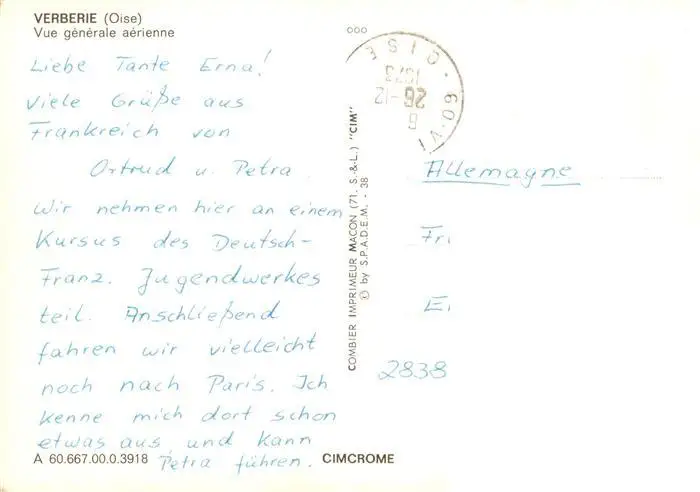 VERBERIE (Oise)
Vue générale aérienne
Liebe Tante Erna!
Viele Grüße aus
Frankreich von
Ortrud u. Petra.
Wir nehmen hier an einem
Kursus des Deutsch-
Franz. Jugendwerkes
teil. Anschließend
fahren wir vielleicht
noch nach Paris. Ich
kenne mich dort schon
etwas aus und kann
Petra führen.
A 60.667.00.0.3918
CIMCROME
COMBIER IMPRIMEUR MACON (71. S.-&-L.) "CIM"
© by S.P.A.D.E.M. - 38
OISE
1973
26-12
6
60-VI
Allemagne
Fr
E
2838